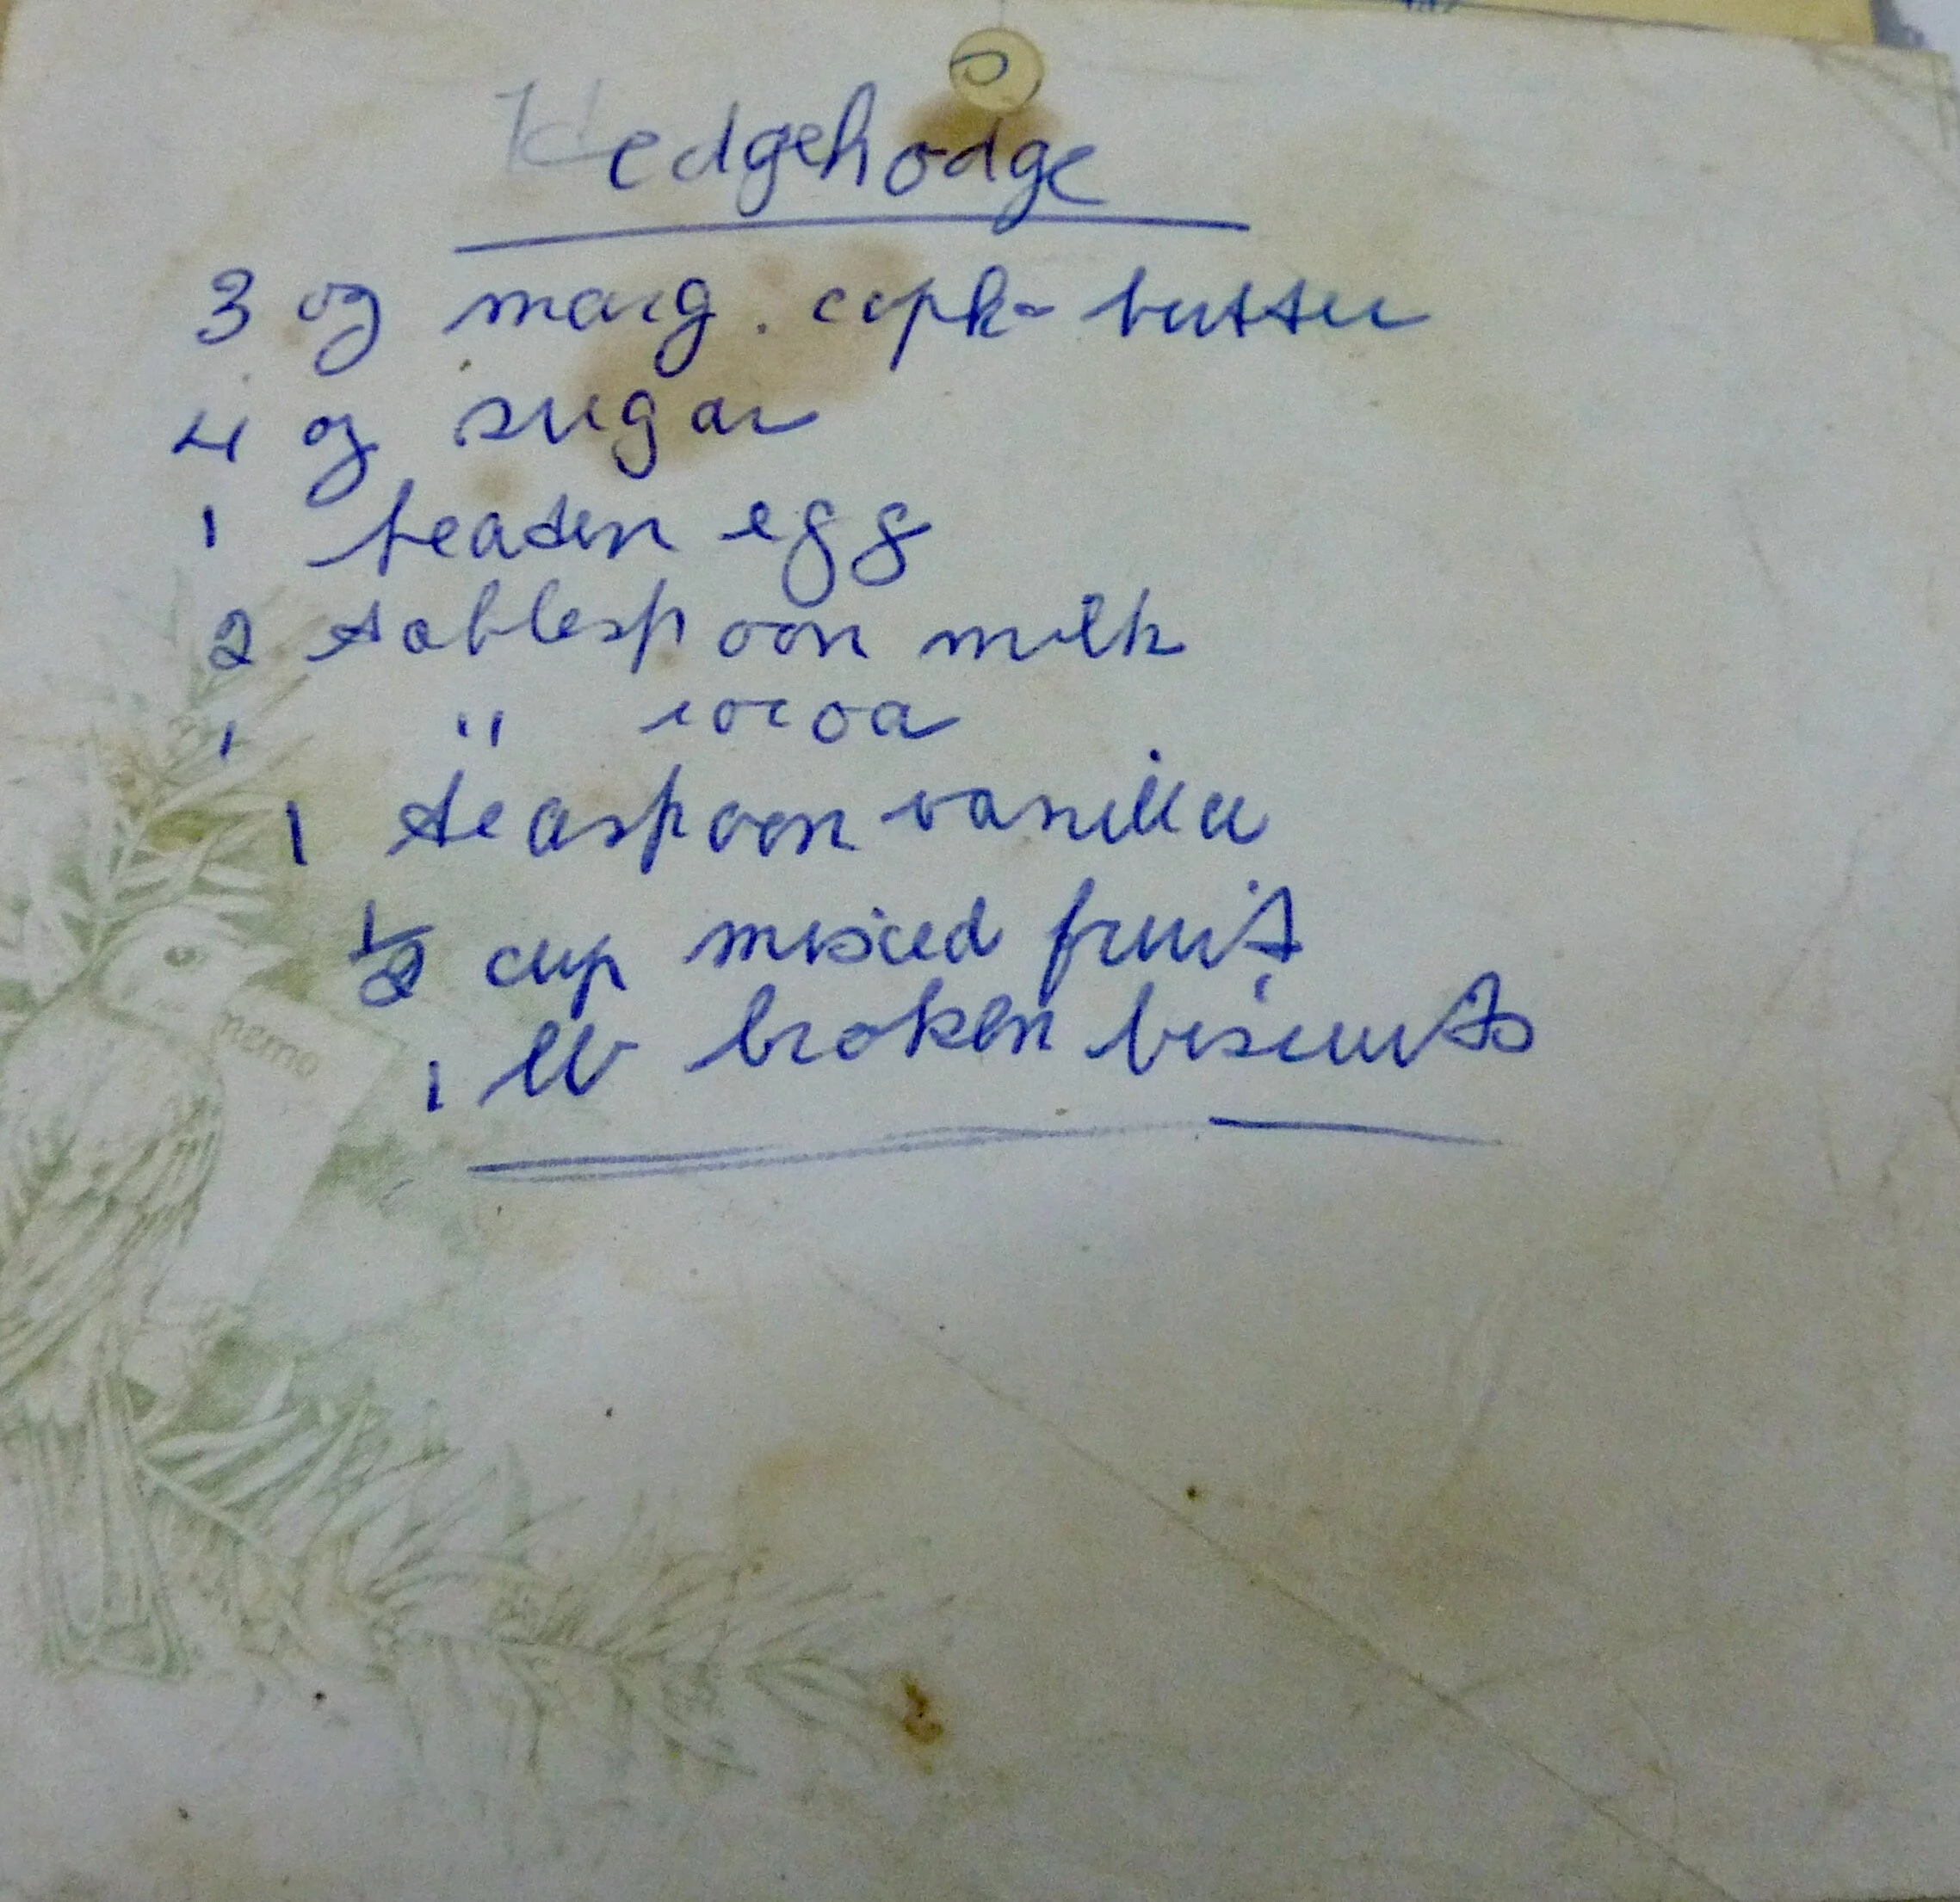 Hedgehodge
3 oz marg. butter
4 oz sugar
1 beaten egg
2 tablespoon milk
1 " cocoa
1 teaspoon vanilla
1/2 cup mixed fruit
1 lb broken biscuits
memo